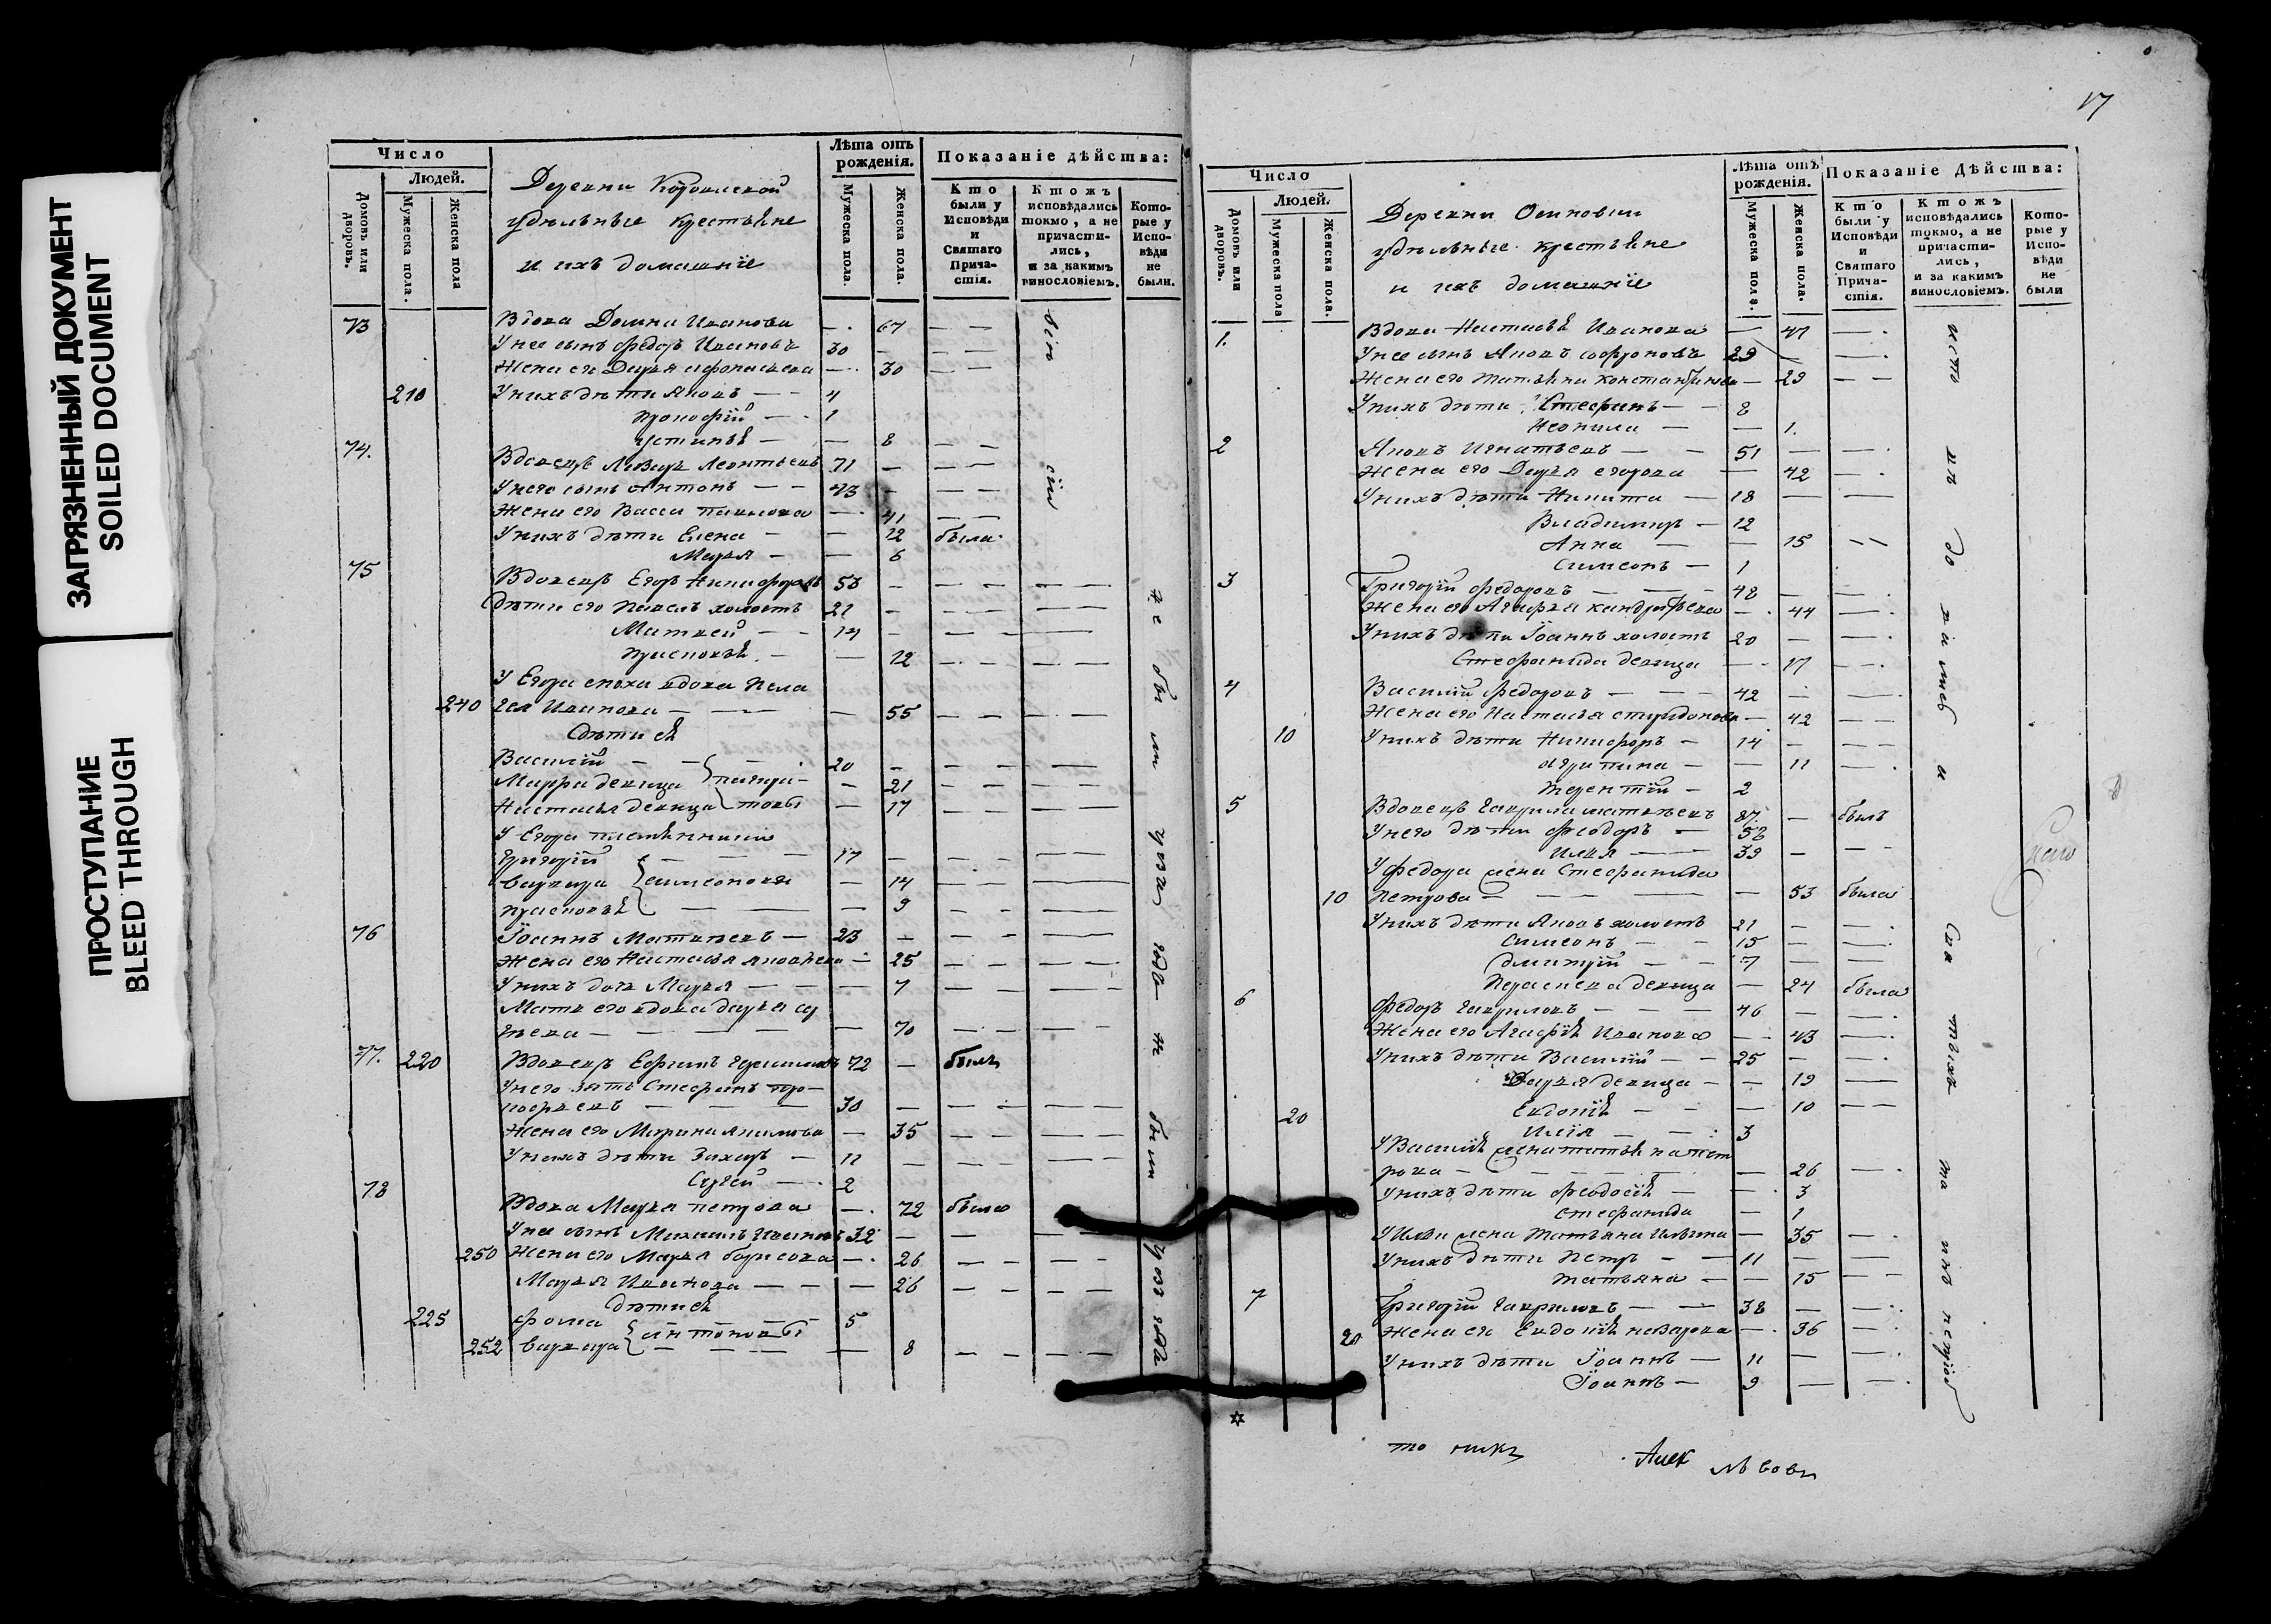 ЗАГРЯЗНЕННЫЙ ДОКУМЕНТ
SOILED DOCUMENT
ПРОСТУПАНИЕ
BLEED THROUGH
Число
Людей.
Домовъ или дворовъ.
Мужеска пола.
Женска пола
Деревни
удѣльные крестьяне
и ихъ домашніе
Лѣта отъ рождения.
Мужеска пола.
Женска пола.
Показаніе дѣйства:
Кто были у Исповѣди и Святаго Причастія.
Ктожъ исповѣдались токмо, а не причастились, и за какимъ винословіемъ.
Которые у Исповѣди не были.
73 Вдова Домна Иванова — 67 — —
У нее сынъ Федоръ Ивановъ 30 — — —
Жена его Дарья Афонасьева — 30 — —
210 У нихъ дѣти Яковъ — — 4
Прокофій — 1
Устинья — — 8 — —
74. Вдовецъ Леонтьевъ 71 — — —
У него сынъ Антонъ — — 43 — — —
Жена его Васса Павлова — 41 — —
У нихъ дѣти Елена — — 12 была
Марья — — 6
75 Вдовецъ Егоръ Никифоровъ 53 — — — — —
Дѣти его Павелъ холостъ 21 — — — — —
Матвей — — 14 — — — —
— — 12 — — — —
У Егора сноха вдова Пела
240 гея Иванова — — — 55 — — — —
Дѣти ея
Василій — — 20 — — — — —
Марфа девица — 21 — — — —
Настасья девица — 17 — — — —
У Егора племянники
Григорій — — — 17 — — — — —
Варвара Симеоновы — 14 — — —
— — — 9 — — —
76 Іоаннъ Матвеевъ — 23 — — — —
Жена его Настасья — 25 — — — —
У нихъ дочь Марья — — — 7 — — — —
Мать его вдова Дарья
— — — — 70 — — — —
77. 220 Вдовецъ Ефимъ 72 — былъ
У него зять Стефанъ Про-
кофьевъ — — — 30 — — — — —
Жена его Марина — 35 — — — —
У нихъ дѣти Захаръ — 11 — — — — —
Сергей — 2
78 Вдова Марья Петрова — 72 была
У нее сынъ Михаилъ Ивановъ 32 — — — —
250 Жена его Марья Борисова — 26 — — — —
Марья Иванова — — — 26 — — — —
Дѣти ея
225 Фома 5
252 Варвара Антоновы — — — — 8 — — — —
не были
17
Число
Людей.
Домовъ или дворовъ.
Мужеска пола
Женска пола.
Деревни Осиновки
удѣльные крестьяне
и ихъ домашніе
Лѣта отъ рождения.
Мужеска пола.
Женска пола.
Показаніе Дѣйства:
Кто были у Исповѣди и Святаго Причастія.
Ктожъ исповѣдались токмо, а не причастились, и за какимъ винословіемъ.
Которые у Исповѣди не были
1. Вдова Настасья Иванова — 47 —
У нее сынъ Яковъ Софроновъ 29 — —
Жена его Татьяна Константинова — 29 — —
У нихъ дѣти Стефанъ — — 8
Неонила — — 1.
2 Яковъ Игнатьевъ — — 51 — —
Жена его Дарья Егорова — 42 —
У нихъ дѣти Никита — 18 — —
Владимиръ — 12
Анна — — 15 — —
Симеонъ — 1
3 Григорій Федоровъ — — — 48 — —
Жена его Агафья — 44 —
У нихъ дѣти Іоаннъ холостъ 20 — —
Стефанида девица — 17 —
4 Василій Федоровъ — — — 42 — —
Жена его Настасья Спиридонова — 42 —
10 У нихъ дѣти Никифоръ — 14 — — —
Агрипина — — 11 —
Терентій — 2
5 Вдовецъ Гаврила Матвеевъ 87 — былъ
У него дѣти Феодоръ — 52
Илья — 39 — — —
У Федора жена Стефанида
10 Петрова — — — — — 53 была
У нихъ дѣти Яковъ холостъ 21 — —
Симеонъ — — 15 — —
Дмитрій — — 7 — —
девица — 24 была
6 Федоръ Гавриловъ — — — 46 — —
Жена его Агафія Иванова — 43 —
У нихъ дѣти Василій — — 25 — —
Дарья девица — — 19 —
20 Евдокія — — — 10 — —
Илія — — 3
У Василія жена Татьяна Пет
рова — — — — — — 26 —
У нихъ дѣти Феодосія — — 3
Стефанида — 1
У Ильи жена Татьяна Ильина — 35 —
У нихъ дѣти Петръ — — 11
Татьяна — — 15 — —
7 Григорій Гавриловъ — — 38 — —
20 Жена его Евдокія — 36 —
У нихъ дѣти Іоаннъ — 11 — —
Іоаннъ — 9 — —
Алек